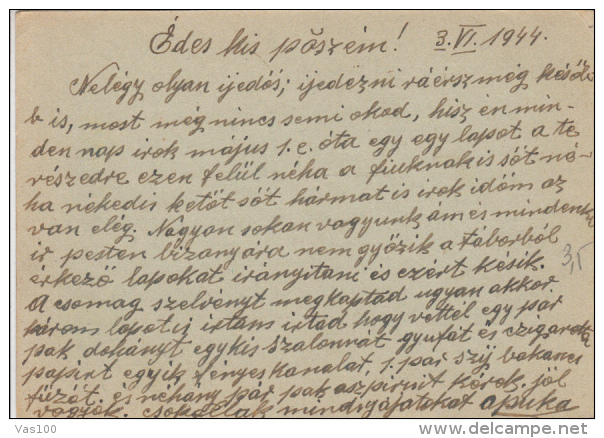 Édes kis pőszém! 3.VI.1944.
Ne légy olyan ijedős; ijedezni ráérsz még késöb
b is, most még nincs semi okod, hisz én min-
den nap irok május 1.e. óta egy egy lapot a te
részedre ezen felül néha a fiuknak is sőt né-
ha nékedis kettőt sőt hármat is irok idöm az
van elég. Nagyon sokan vagyunk ám és mindenki
ir pesten bizonyára nem győzik a táborból
érkező lapokat irányitani és ezért késik.
A csomag szelvényt megkaptad ugyan akkor
három lapot is irtam irtad hogy vettél egy pár
pak dohányt egy kis szalonnát gyufát és czigaretta
papirt egyik fenyes kanalat, 1. pár szij bakancs
füzöt. és néhány pár pak aszpirint kérek. jól
vagyok. csokollak mindnyájatokat apuka
3,5
Vas100
www.delcampe.net